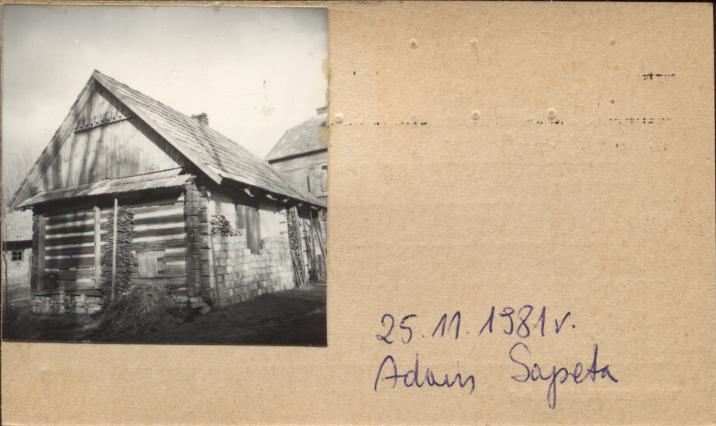 25.11.1981r.
Adam Sapeta